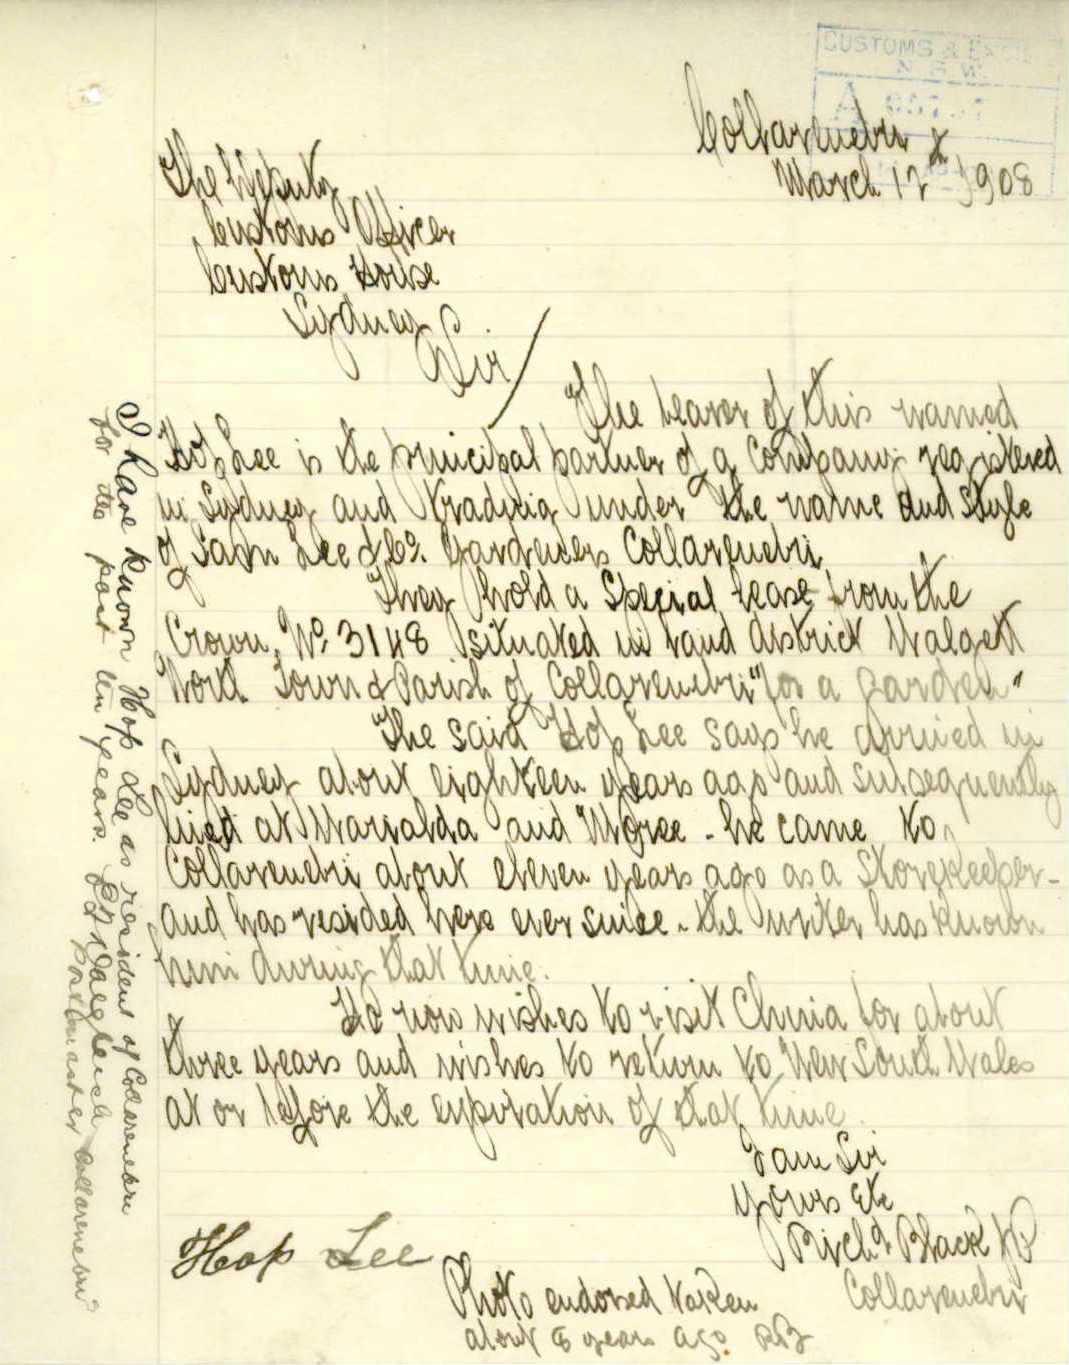 CUSTOMS & EXCISE
N.S.W.
Collarenebri
March 12th 1908
The Deputy
Customs Officer
Customs House
Sydney
Sir/
The bearer of this named
Hop Lee is the principal partner of a Company registered
in Sydney and trading under the name and Style
of Sam Lee & Co. Gardeners Collarenebri
They hold a Special Lease from the
Crown, No. 3148 situated in Land District Walgett
North Town & Parish of Collarenebri "for a garden"
The said Hop Lee says he arrived in
Sydney about eighteen years ago and subsequently
lived at Warialda and Moree - he came to
Collarenebri about eleven years ago as a Storekeeper -
and has resided here ever since - the writer has known
him during that time.
He now wishes to visit China for about
three years and wishes to return to New South Wales
at or before the expiration of that time.
I am Sir
Yours Etc
Richd Black JP
Collarenebri
Hop Lee
Photo endorsed taken
about 6 years ago. RB
I have known Hop Lee as resident of Collarenebri
for the past ten years.
Postmaster Collarenebri